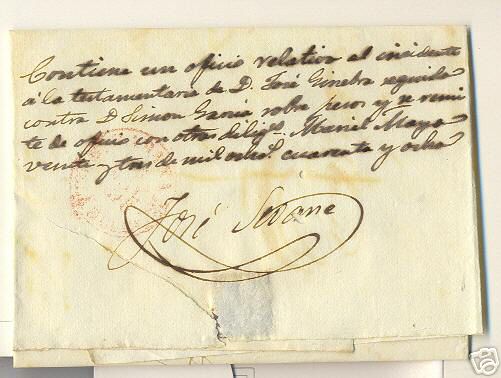 Contiene un oficio relativo al incidente
á la testamentaria de D. José Ginebra seguida
contra D. Simon Garcia sobre pesos y se remi
te de oficio con otras dilig.s Mariel Mayo
veinte y tres de mil ochos. cuarenta y ocho
José Seoane